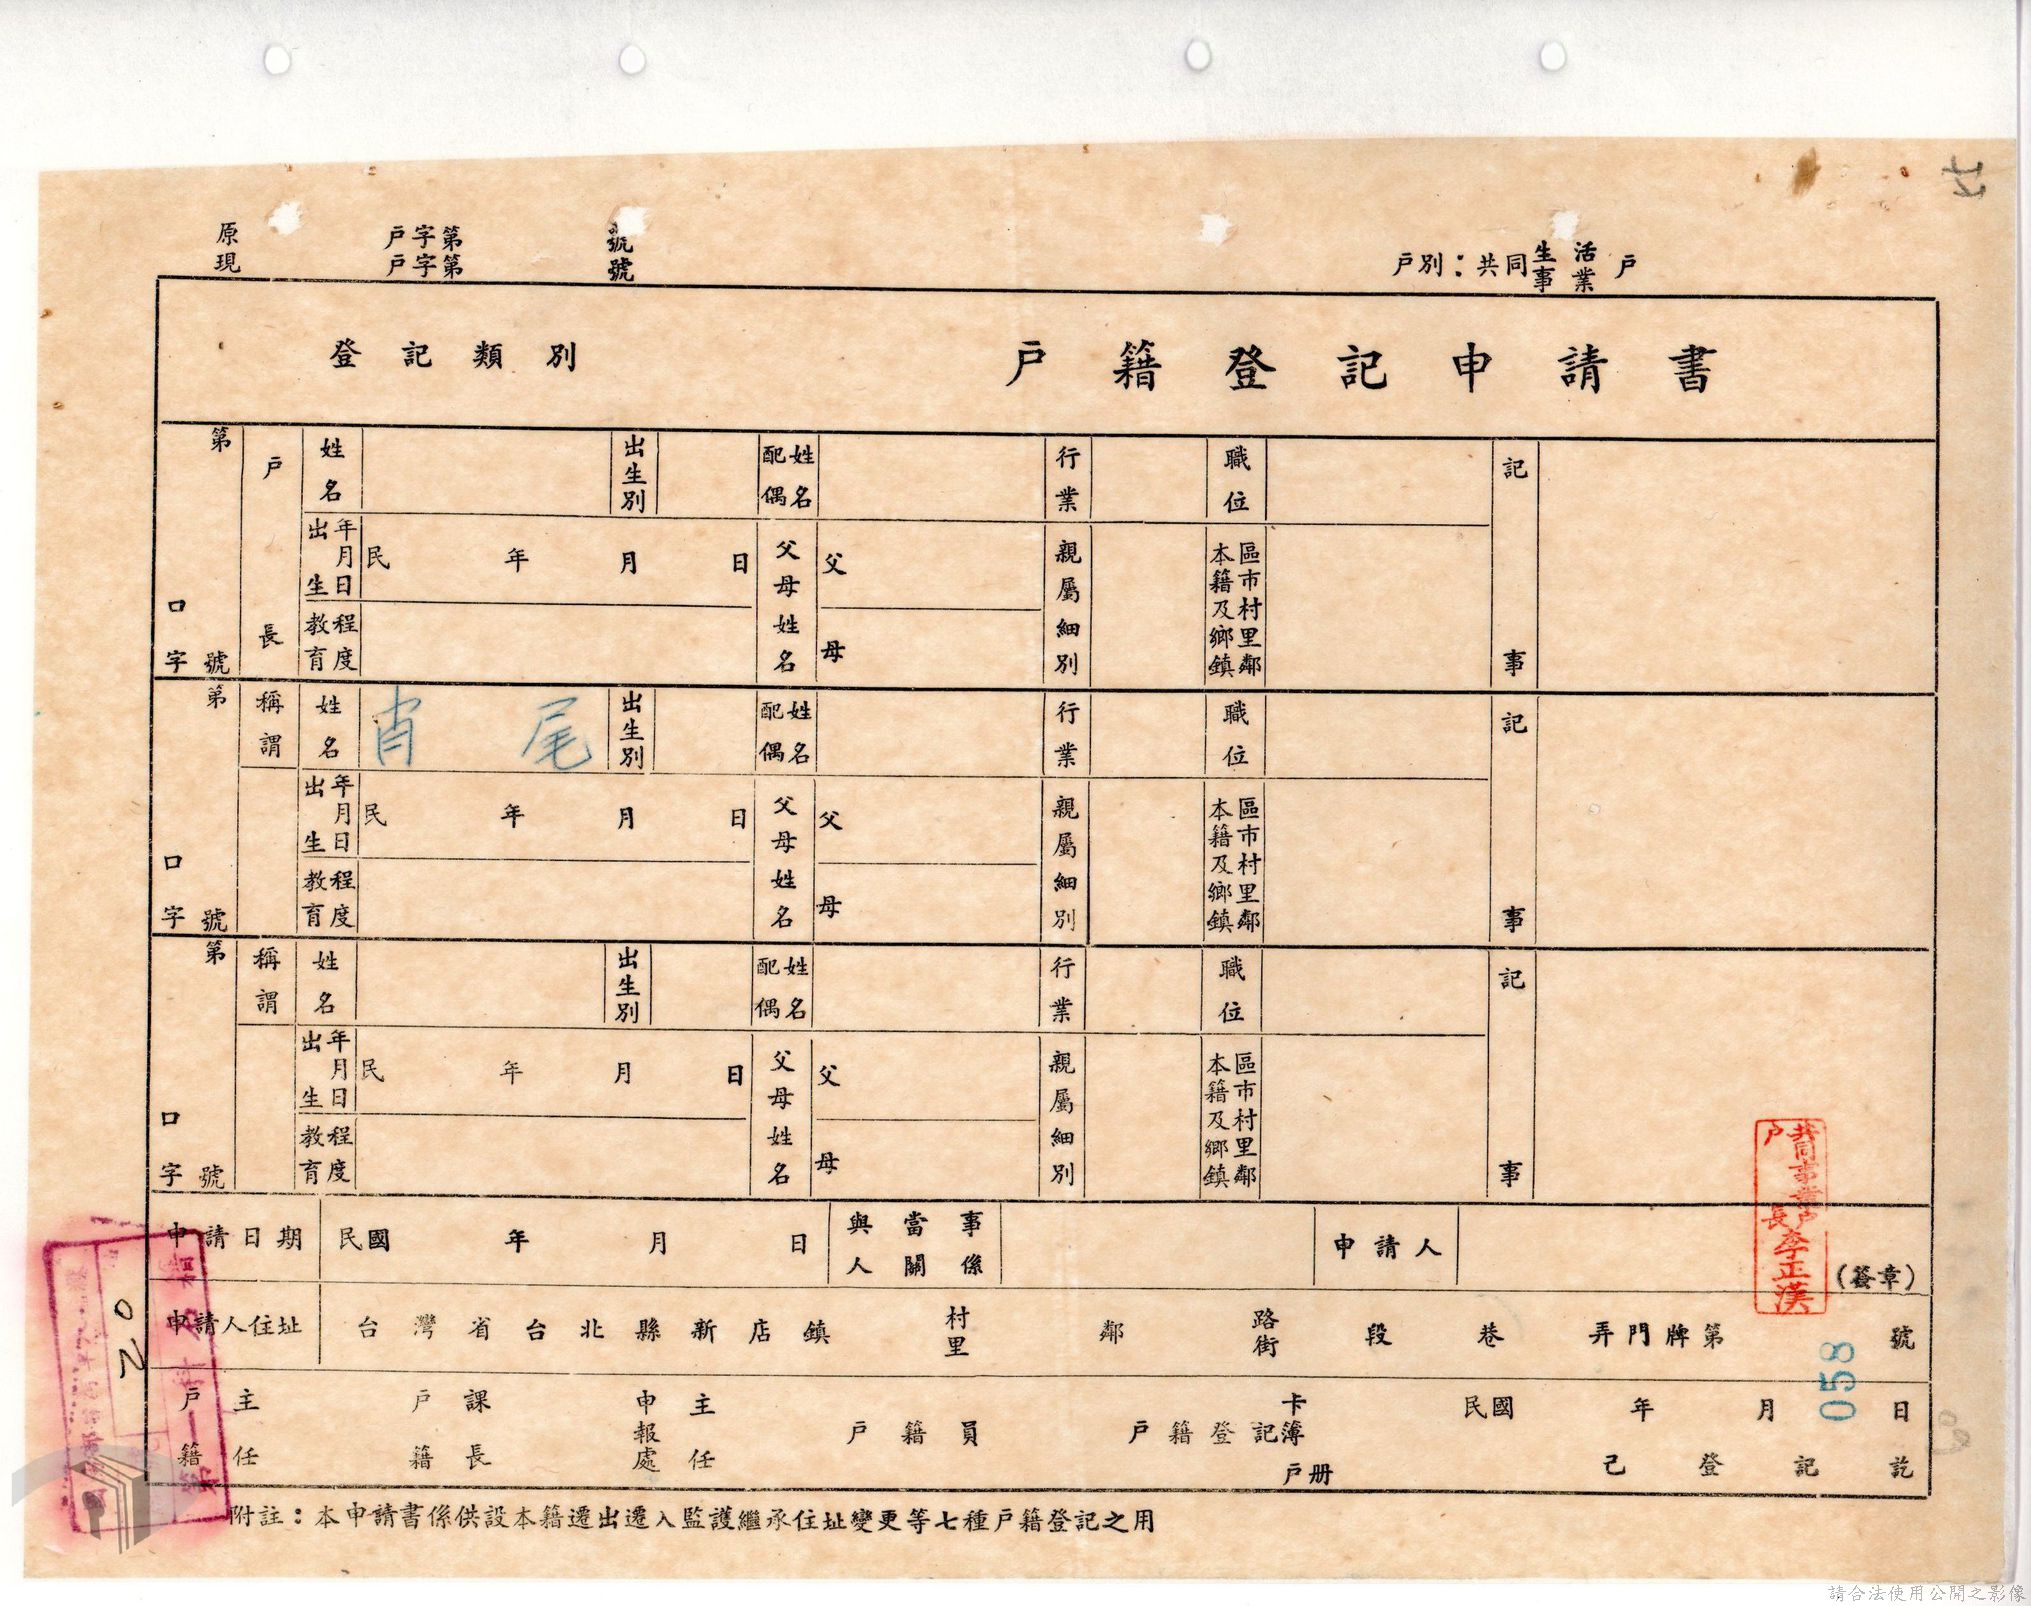 原 戶字第 號
現 戶字第 號
戶別：共同生活事業戶
登記類別 戶籍登記申請書
第 口字 號
戶長
姓名
出生別
配偶姓名
行業
職位
記事
出生年月日 民 年 月 日
父母姓名 父 母
親屬細別
本籍及鄉鎮區市村里鄰
教育程度
第 口字 號
稱謂
姓名 肖尾
出生別
配偶姓名
行業
職位
記事
出生年月日 民 年 月 日
父母姓名 父 母
親屬細別
本籍及鄉鎮區市村里鄰
教育程度
第 口字 號
稱謂
姓名
出生別
配偶姓名
行業
職位
記事
出生年月日 民 年 月 日
父母姓名 父 母
親屬細別
本籍及鄉鎮區市村里鄰
教育程度
共同事業戶
戶長李正漢
申請日期 民國 年 月 日 與當事人關係 申請人 (簽章)
申請人住址 台灣省台北縣新店鎮 村里 鄰 路街 段 巷 弄門牌第 號
058
戶籍主任 戶籍課長 申報處主任 戶籍員 戶籍登記卡簿戶册 民國 年 月 日 己登記訖
附註：本申請書係供設本籍遷出遷入監護繼承住址變更等七種戶籍登記之用
請合法使用公開之影像